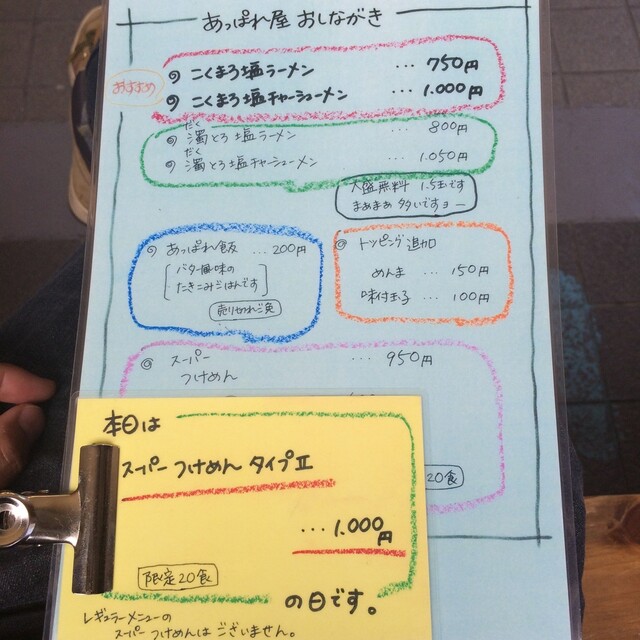 あっぱれ屋 おしながき
おすすめ
◎ こくまろ塩ラーメン … 750円
◎ こくまろ塩チャーシューメン … 1.000円
だく
◎ 濁とろ塩ラーメン … 800円
だく
◎ 濁とろ塩チャーシューメン … 1.050円
大盛無料 1.5玉です
まあまあ 多いですョー
◎ あっぱれ飯 … 200円
バター風味の
たきこみごはんです
売り切れご免
◎ トッピング追加
めんま … 150円
味付玉子 … 100円
◎ スーパー … 950円
つけめん
20食
本日は
スーパー つけめん タイプⅡ
… 1.000円
限定20食
の日です。
レギュラーメニューの
スーパー つけめんは ございません。